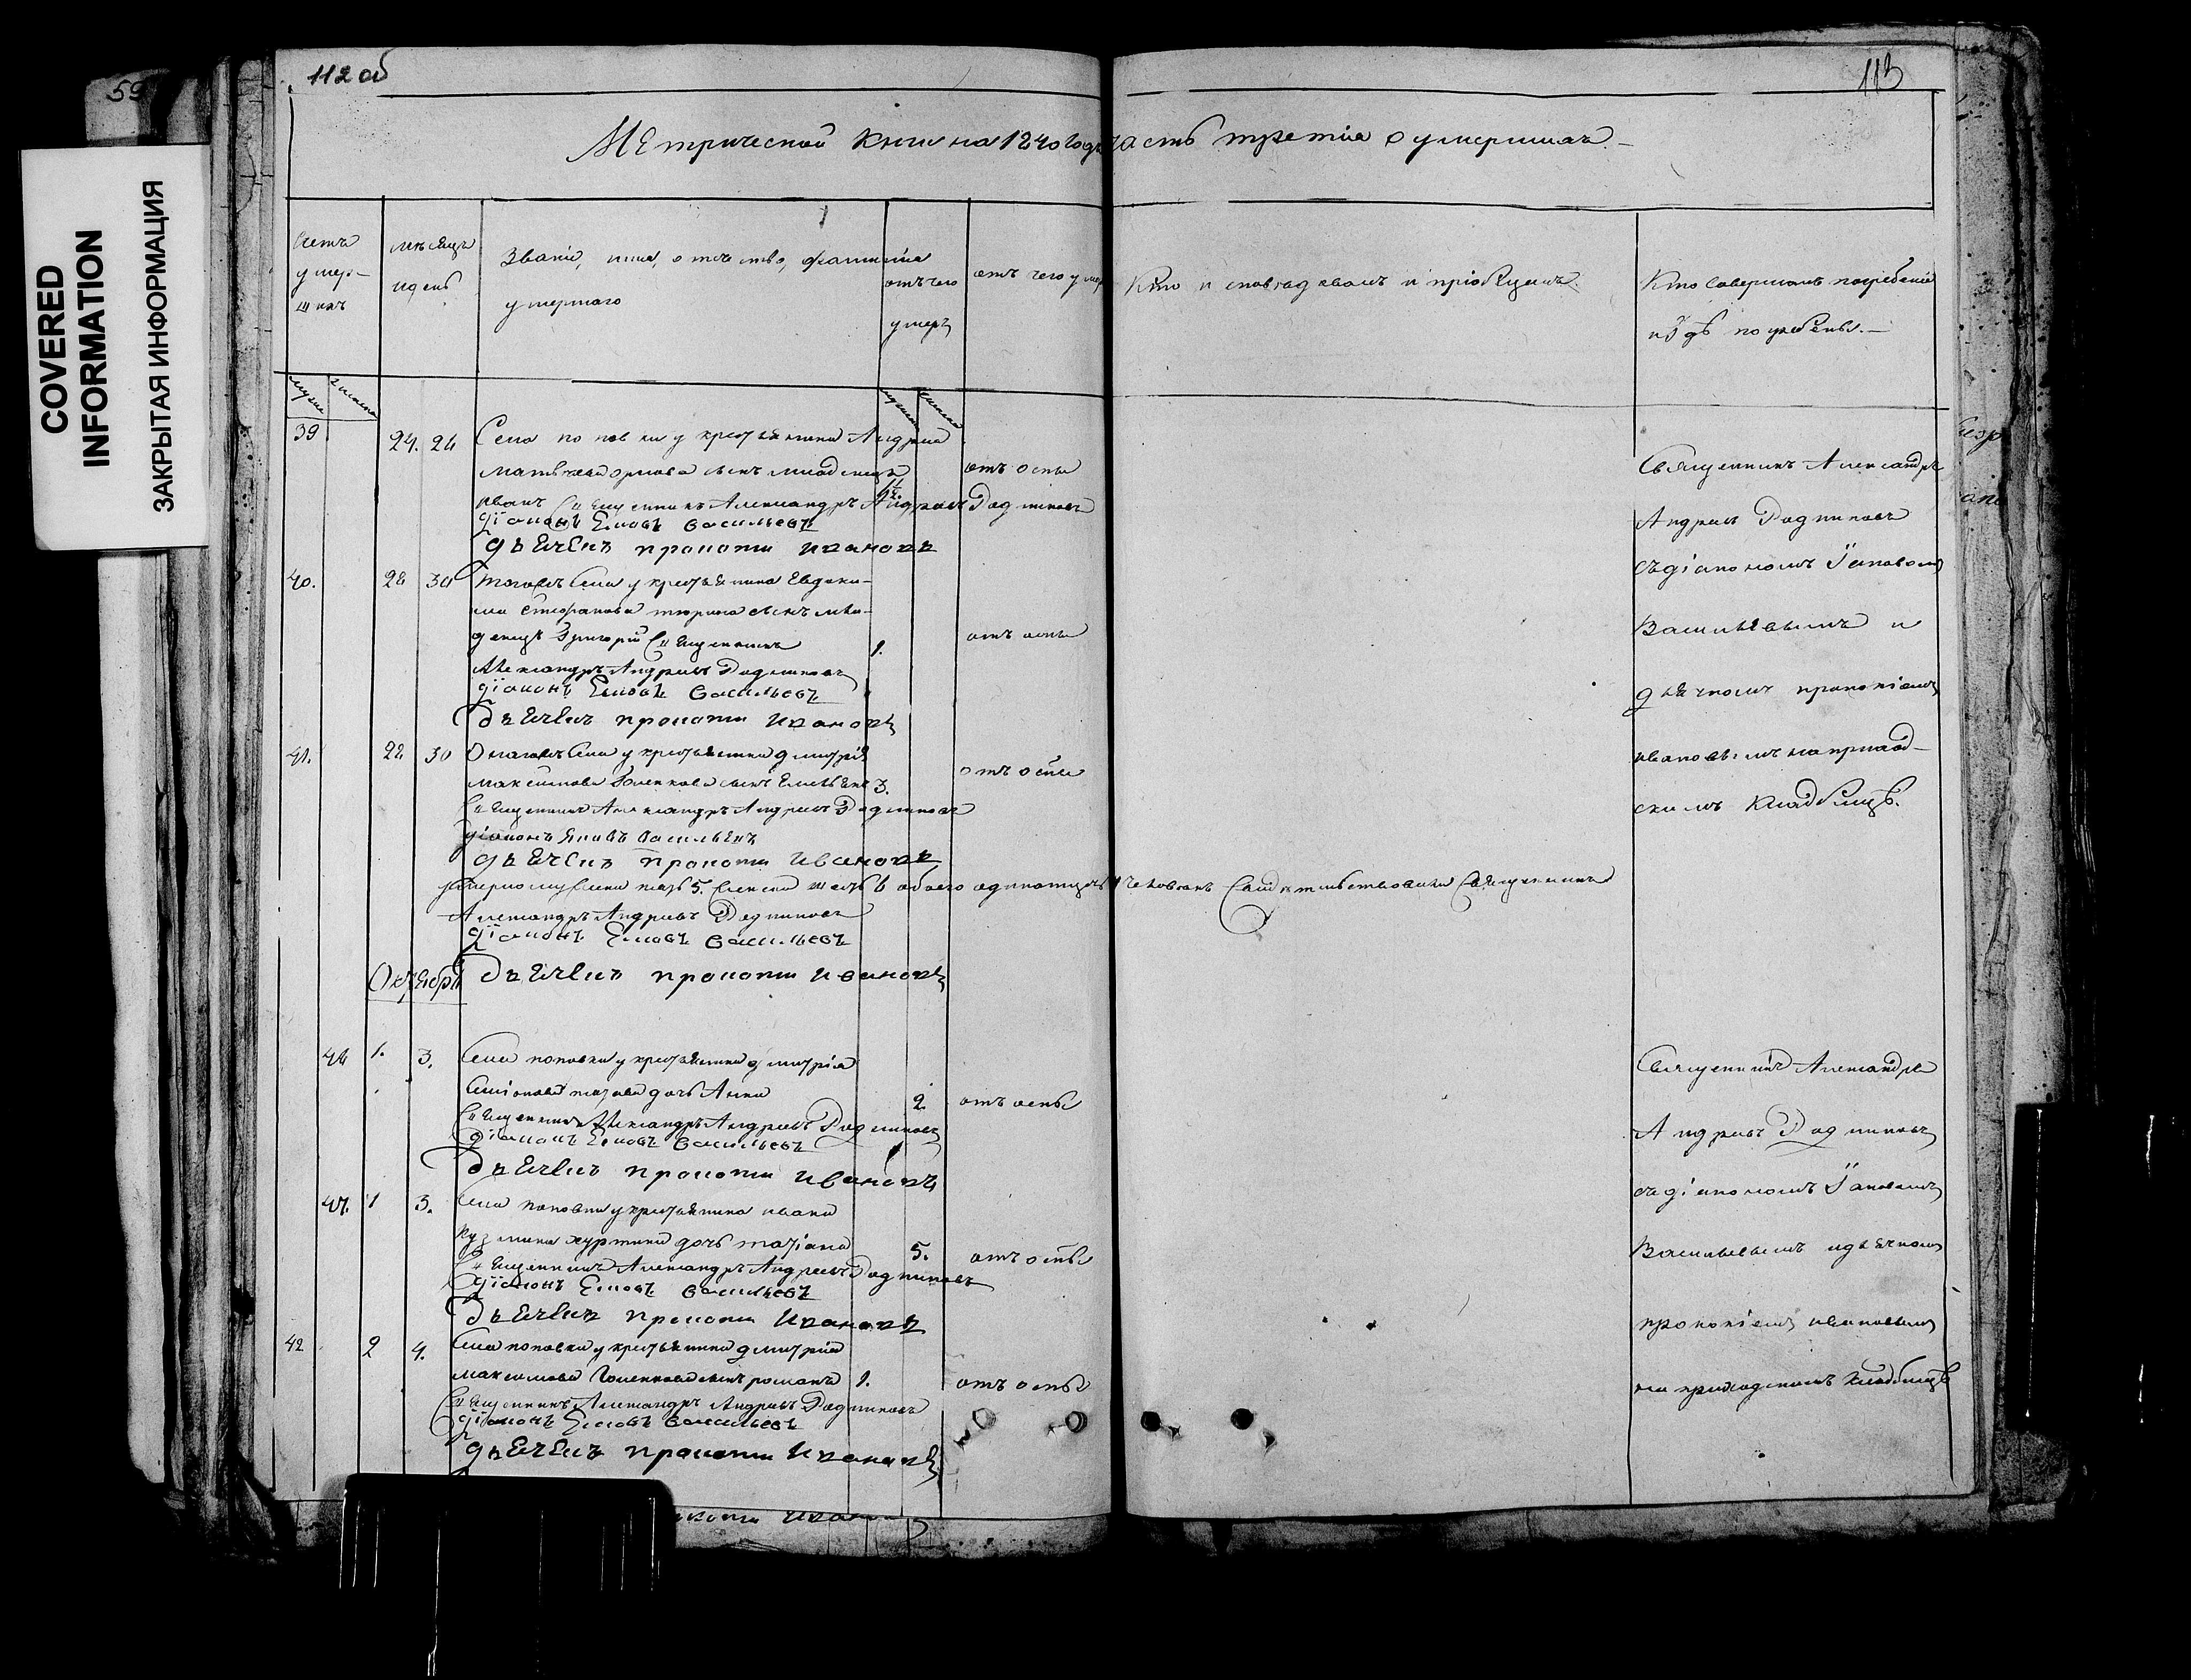 59
COVERED
INFORMATION
ЗАКРЫТАЯ ИНФОРМАЦИЯ
112 об
113
Метрической книги на 1840 годъ часть третiя о умершихъ
Счетъ
умер-
шихъ
мѣсяцъ
и день
Званiе, имя, отчество, фамилiя
умершаго
отъ чего
умеръ
отъ чего умер
Кто исповѣдывалъ и прiобщалъ.
Кто совершалъ погребенiе
и гдѣ погребены.
39
24. 26
Села поповки у крестьянина Андрея
сынъ младенецъ
Иванъ Священникъ Александръ Андреевъ
отъ оспы
дiаконъ Ековъ Васильевъ
дьячекъ прокопи Ивановъ
Священникъ Александръ
Андреевъ
съ дiакономъ Iаковомъ
Васильевымъ и
дьячкомъ прокопiемъ
ивановымъ на приход-
скомъ кладбищѣ.
40.
28 30
тогожъ села у крестьянина Евдоки-
ма Стефанова тюрина сынъ мла-
денецъ Григорiй Священникъ
1.
отъ оспы
Александръ Андреевъ
дiаконъ Ековъ Васильевъ
Дьячекъ прокопи Ивановъ
41.
28 30
Онагожъ села у крестьянина дмитрiя
максимова сынъ Емельянъ 3.
отъ оспы
Священникъ Александръ Андреевъ
дiаконъ Яковъ Васильевъ
дьячекъ прокопи Ивановъ
5. женска шесть 6 обоего одинатцеть 11 человѣкъ Свидетельствовали Священникъ
Александръ Андреевъ
дiаконъ Ековъ Васильевъ
Октября
Дьячекъ прокопи Ивановъ
46 1. 3.
Села поповки у крестьянина дмитрiя
дочь Анна
2.
отъ оспы
Священникъ Александръ Андреевъ
дiаконъ Ековъ Васильевъ
Дьячекъ прокопи Ивановъ
Священникъ Александръ
Андреевъ
съ дiакономъ Iаковомъ
Васильевымъ и дьячкомъ
прокопiемъ ивановымъ
на приходскомъ кладбищѣ
47. 1 3.
Села поповки у крестьянина ивана
кузмина дочь татiана
5.
отъ оспы
Священникъ Александръ Андреевъ
дiаконъ Ековъ Васильевъ
Дьячекъ прокопи Ивановъ
42 2 4.
Села поповки у крестьянина дмитрiя
максимова сынъ романъ 1.
отъ оспы
Священникъ Александръ Андреевъ
дiаконъ Ековъ Васильевъ
дьячекъ прокопи Ивановъ